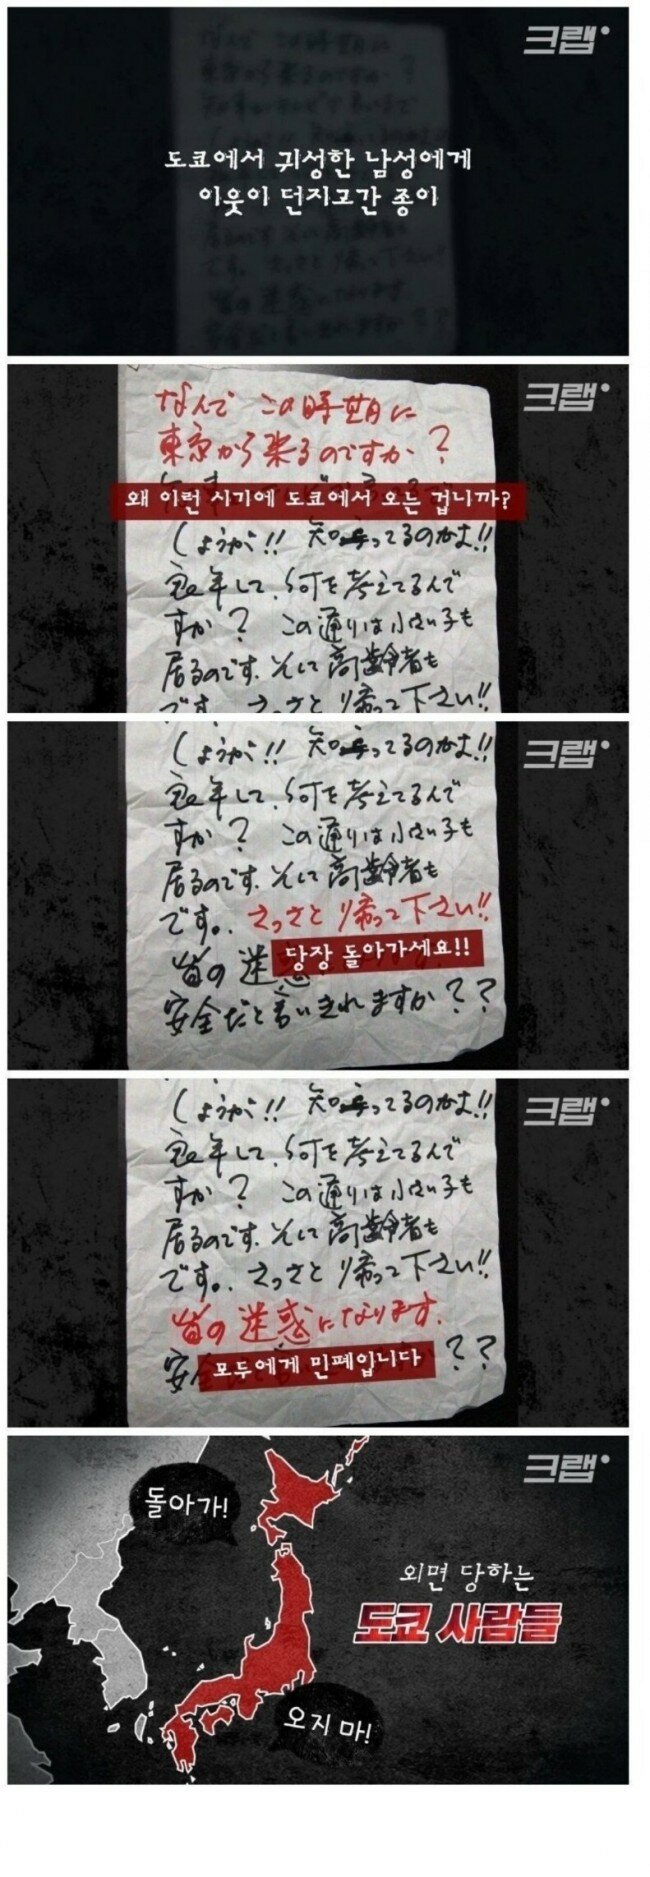 크랩
도쿄에서 귀성한 남성에게
이웃이 던지고간 종이
크랩
なんで この時期に
東京から来るのですか？
왜 이런 시기에 도쿄에서 오는 겁니까?
しょうが!! 知ってるのかよ!!
良い年して、何を考えてるんで
すか？ この通りは小さい子も
居るのです。そして高齢者も
です。さっさと帰って下さい!!
크랩
しょうが!! 知ってるのかよ!!
良い年して、何を考えてるんで
すか？ この通りは小さい子も
居るのです。そして高齢者も
です。さっさと帰って下さい!!
당장 돌아가세요!!
皆の迷惑
安全だと言いきれますか？？
크랩
しょうが!! 知ってるのかよ!!
良い年して、何を考えてるんで
すか？ この通りは小さい子も
居るのです。そして高齢者も
です。さっさと帰って下さい!!
皆の迷惑になります。
모두에게 민폐입니다
安 ？？
크랩
돌아가!
외면 당하는
도쿄 사람들
오지 마!